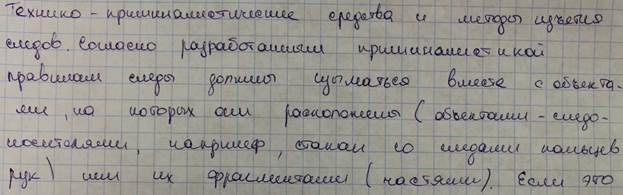 Технико-криминалистические средства и методы изъятия
следов. Согласно разработанным криминалистикой
правилам следы должны изыматься вместе с объекта-
ми, на которых они расположены (объектами-следо-
носителями, например, стакан со следами пальцев
рук) или их фрагментами (частями). Если это